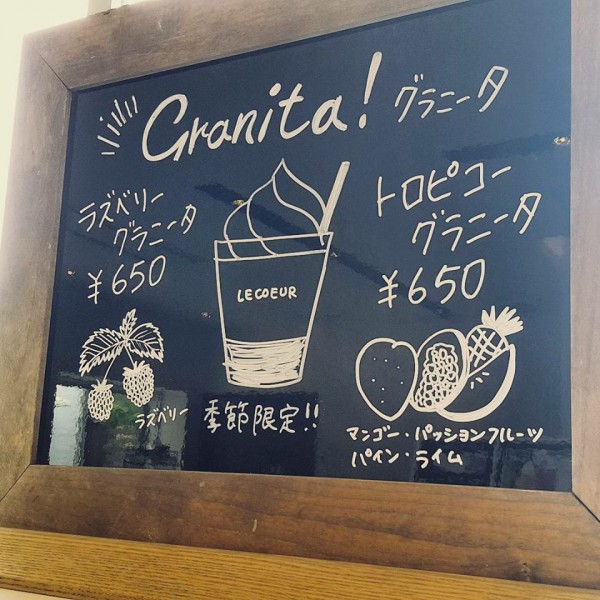 Granita! グラニータ
ラズベリー
グラニータ
¥650
LECOEUR
トロピコー
グラニータ
¥650
ラズベリー
季節限定!!
マンゴー・パッションフルーツ
パイン・ライム